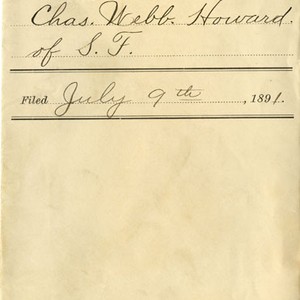 Chas. Webb. Howard.
of S. F.
Filed July 9th, 1891.